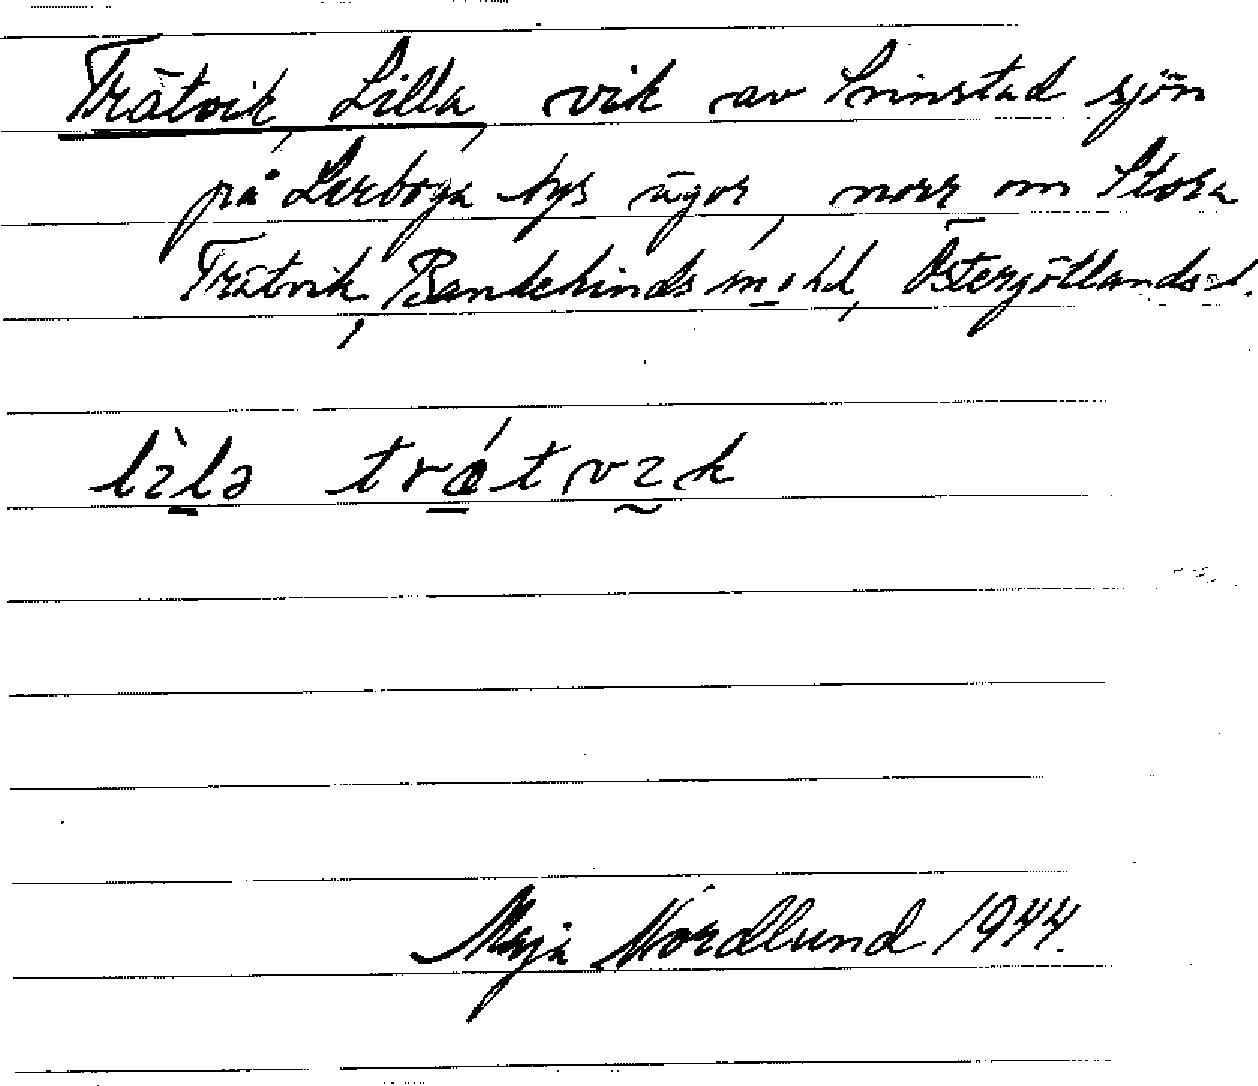 Trätvik, Lilla, vik av Svinstad sjön
på Lerboga bys ägor, norr om Stora
Trätvik, Bankekinds mo hd, Östergötlands l.
lìlə trǽtvɪk
Maja Nordlund 1944.